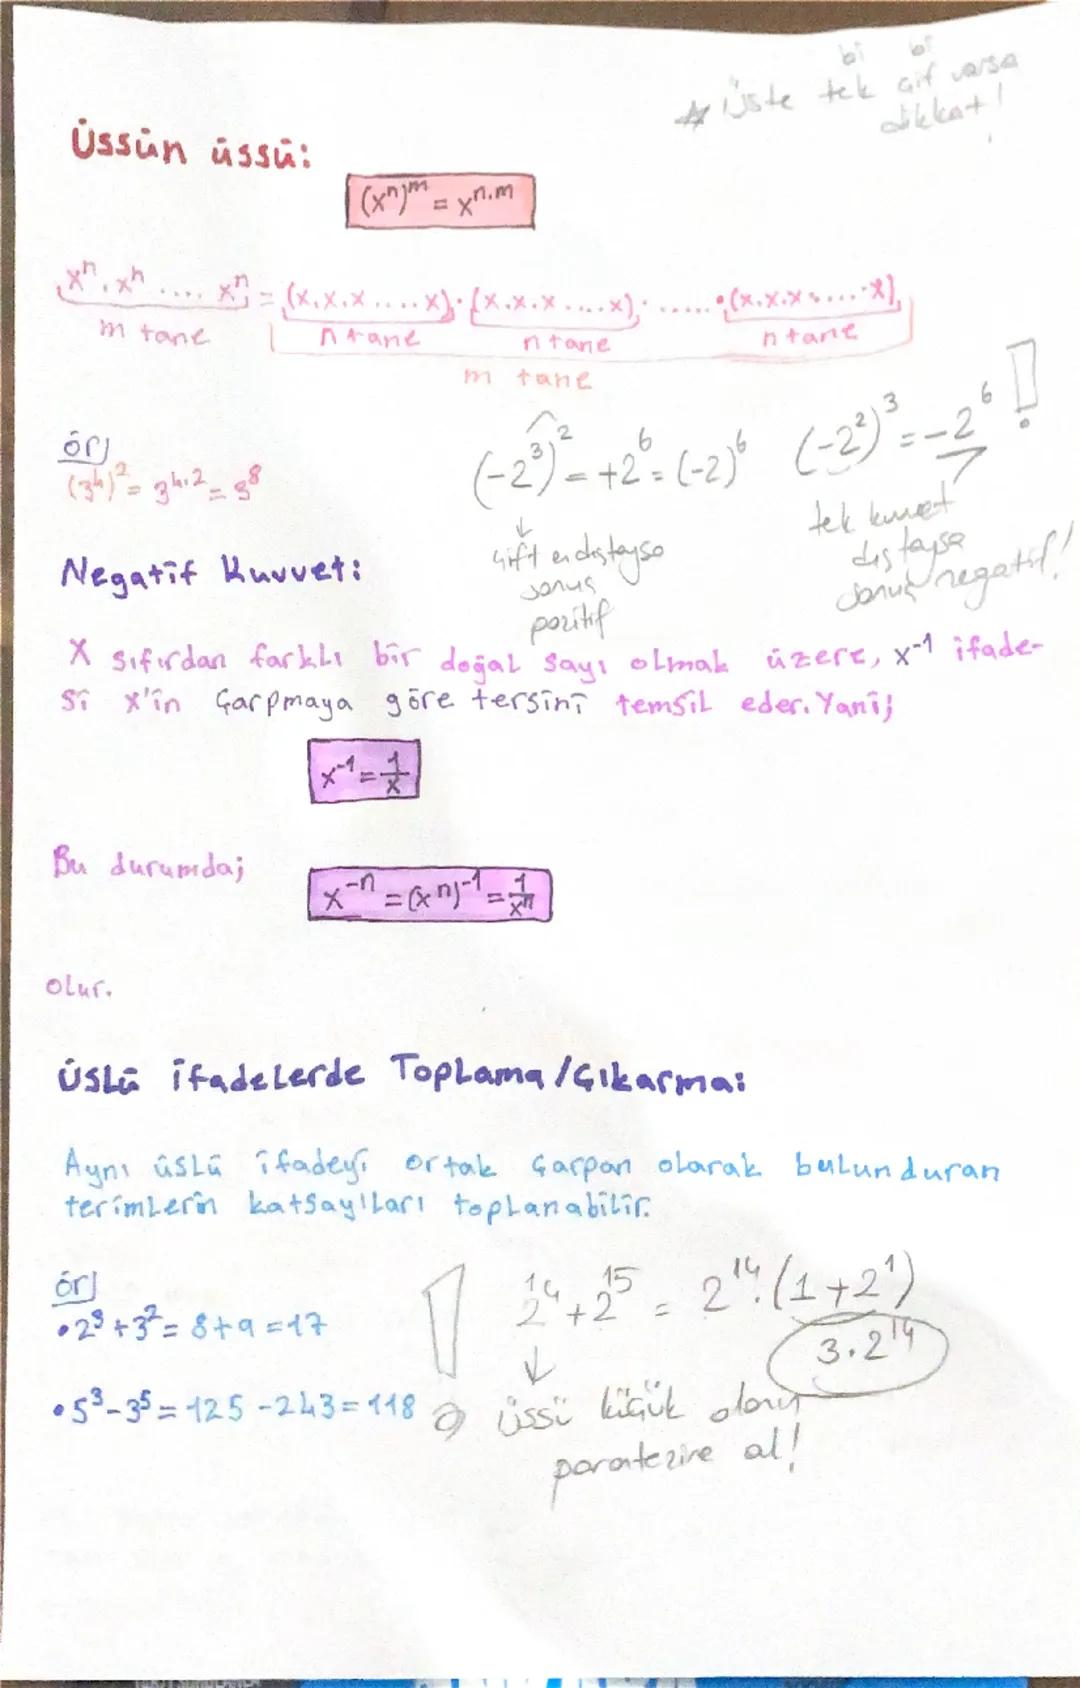 bi bi
☆ Üste tek çif varsa
dikkat!
Üssün üssü:
(xⁿ)ᵐ = xⁿ·ᵐ
xⁿ.xⁿ .... xⁿ = (x.x.x....x).(x.x.x....x)......(x.x.x.....x)
m tane n tane n tane n tane
m tane
örj
(3⁴)² = 3⁴·² = 3⁸
(-2³)² = +2⁶ = (-2)⁶ (-2²)³ = -2⁶ !
↓
çift en dıştaysa
sonuç
pozitif
tek kuvvet
dıştaysa
sonuç negatif!
Negatif Kuvvet:
X sıfırdan farklı bir doğal sayı olmak üzere, x⁻¹ ifade-
si x'in çarpmaya göre tersini temsil eder. Yani;
x⁻¹ = 1/x
Bu durumda;
x⁻ⁿ = (xⁿ)⁻¹ = 1/xⁿ
olur.
Üslü ifadelerde Toplama/Çıkarma:
Aynı üslü ifadeyi ortak çarpan olarak bulunduran
terimlerin katsayıları toplanabilir.
örj
•2³+3²= 8+9=17
•5³-3⁵=125-243=118
! 2¹⁴+2¹⁵ = 2¹⁴.(1+2¹)
3.2¹⁴
↓
üssü küçük olanın
parantezine al!